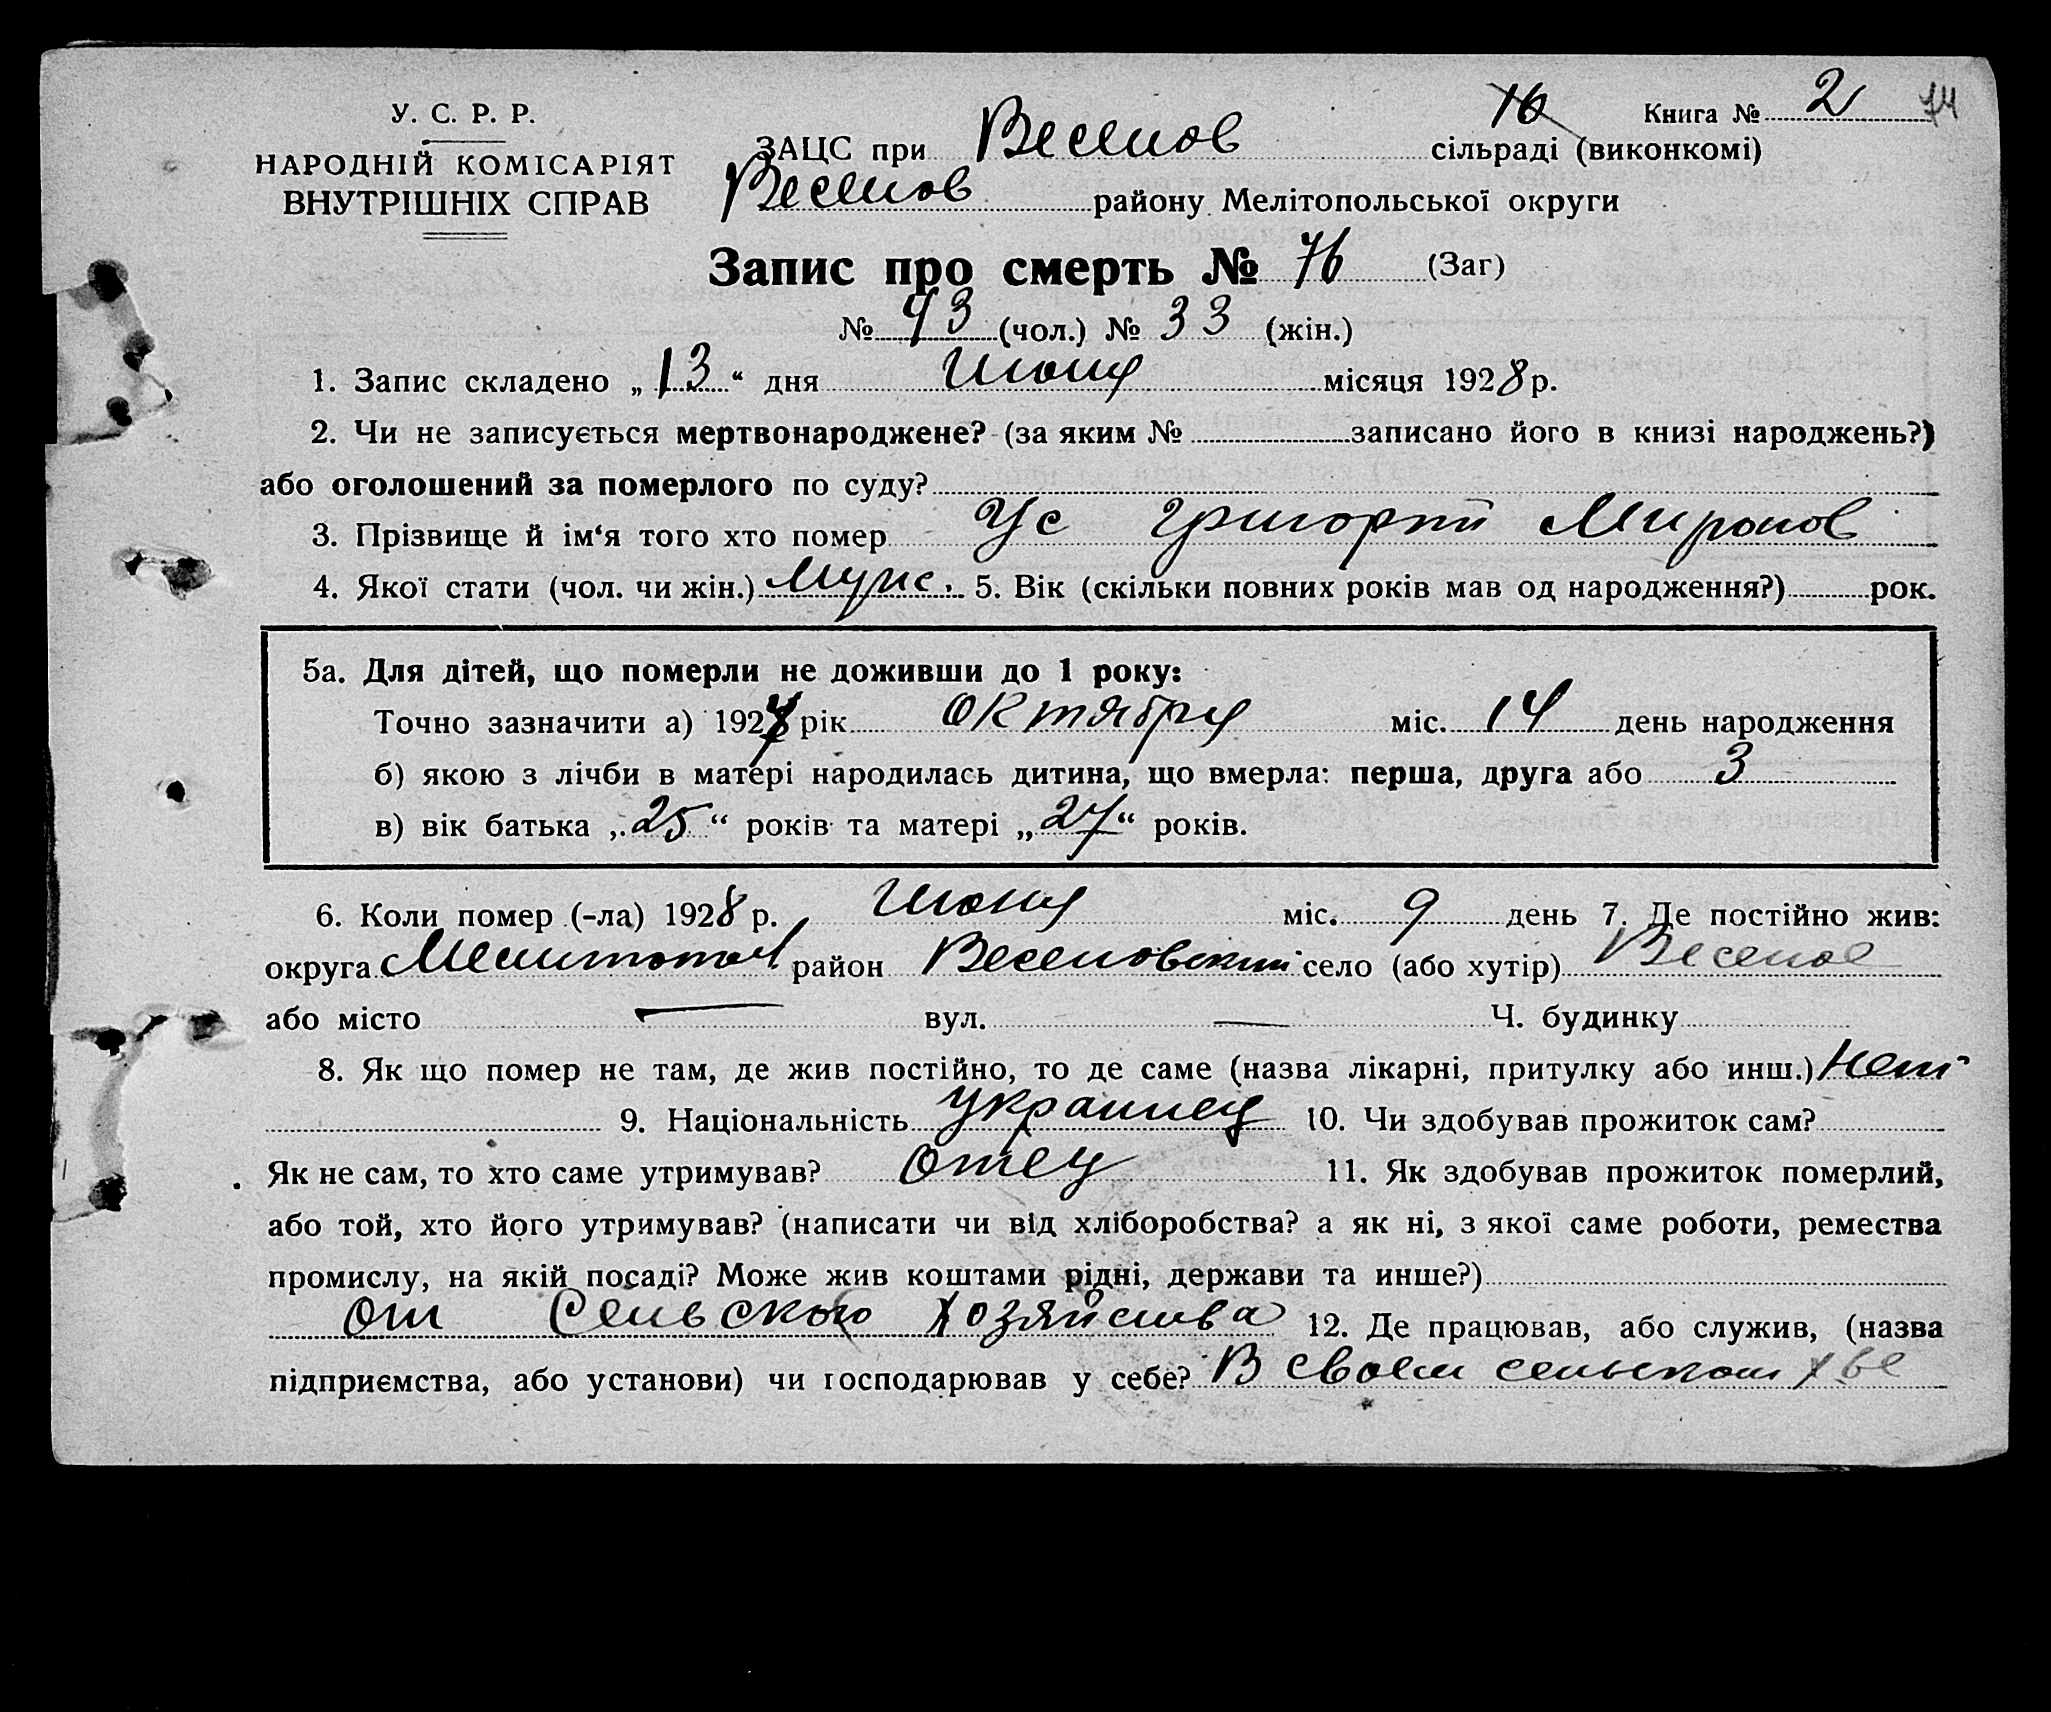 У. С. Р. Р.
НАРОДНІЙ КОМІСАРІЯТ
ВНУТРІШНІХ СПРАВ
16 Книга № 2 74
ЗАЦС при Веселов сільраді (виконкомі)
Веселов району Мелітопольської округи
Запис про смерть № 76 (Заг)
№ 43 (чол.) № 33 (жін.)
1. Запис складено „13“ дня Июня місяця 1928 р.
2. Чи не записується мертвонароджене? (за яким № записано його в книзі народжень?)
або оголошений за померлого по суду?
3. Прізвище й ім‘я того хто помер Ус Григорий Миронов
4. Якої стати (чол. чи жін.) Мужс. 5. Вік (скільки повних років мав од народження?) рок.
5а. Для дітей, що померли не доживши до 1 року:
Точно зазначити а) 1927 рік октября міс. 14 день народження
б) якою з лічби в матері народилась дитина, що вмерла: перша, друга або 3
в) вік батька „25“ років та матері „27“ років.
6. Коли помер (-ла) 1928 р. Июня міс. 9 день 7. Де постійно жив:
округа Мелитопол район Веселовский село (або хутір) Веселое
або місто — вул. — Ч. будинку
8. Як що помер не там, де жив постійно, то де саме (назва лікарні, притулку або инш.) Нет
9. Національність украинец 10. Чи здобував прожиток сам?
Як не сам, то хто саме утримував? отец 11. Як здобував прожиток померлий,
або той, хто його утримував? (написати чи від хліборобства? а як ні, з якої саме роботи, ремества
промислу, на якій посаді? Може жив коштами рідні, держави та инше?)
от сельского хозяйства 12. Де працював, або служив, (назва
підприємства, або установи) чи господарював у себе? В своем сельском х-ве